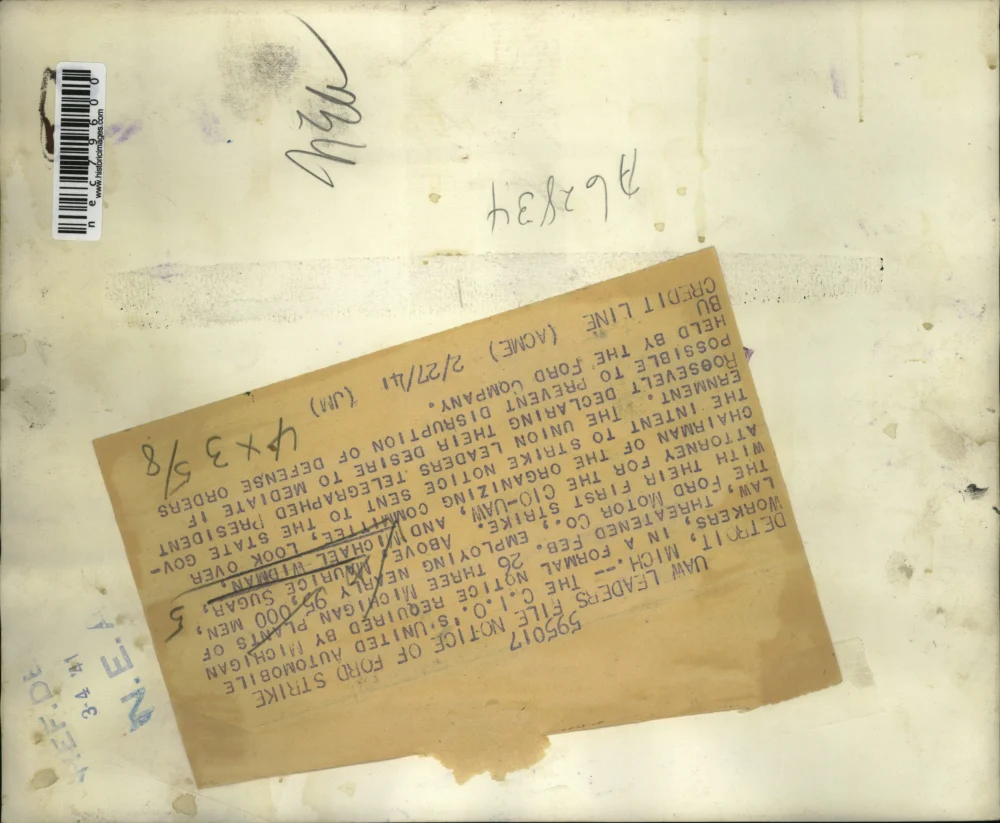 595017
UAW LEADERS FILE NOTICE OF FORD STRIKE
DETROIT, MICH.-- THE C.I.O.'S UNITED AUTOMOBILE
WORKERS, IN A FORMAL NOTICE REQUIRED BY MICHIGAN
LAW, THREATENED FEB. 26 NOT THREE MICHIGAN PLANTS OF
THE FORD MOTOR CO., EMPLOYING NEARLY 95,000 MEN,
WITH THEIR FIRST STRIKE. ABOVE, MAURICE SUGAR,
ATTORNEY FOR THE CIO-UAW, AND MICHAEL WIDMAN,
CHAIRMAN OF THE ORGANIZING COMMITTEE, LOOK OVER
THE INTENT TO STRIKE NOTICE SENT TO THE STATE GOV-
ERNMENT. THE UNION LEADERS TELEGRAPHED PRESIDENT
ROOSEVELT DECLARING THEIR DESIRE TO MEDIATE IF
POSSIBLE TO PREVENT DISRUPTION OF DEFENSE ORDERS
HELD BY THE FORD COMPANY.
BU
CREDIT LINE (ACME) 2/27/41 (JM)
4 x 3 5/8
5
A62834
N.E.A.
REF. DE
3 4 '41
www.historicimages.com
nec79600